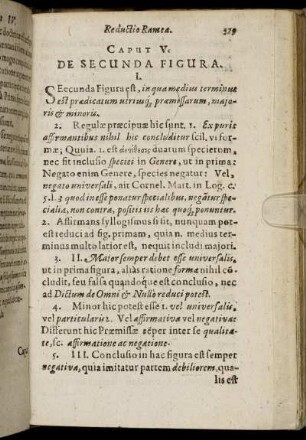 Reductio Ramea.
CAPUT V.
DE SECUNDA FIGURA.
I.
SEcunda Figura est, in qua medius terminus
est prædicatum utriusq; præmissarum, majo-
ris & minoris.
2. Regulæ præcipuæ hîc sunt. 1. Ex puris
affirmantibus nihil hîc concluditur scil. vi for-
mæ; Quia. 1. est duarum specierum,
nec fit inclusio speciei in Genere, ut in prima:
Negato enim Genere, species negatur: Vel,
negato universali, ait Cornel. Mart. in Log. c.
5. l. 3 quod in esse ponatur specialibus, negãtur spe-
cialia, non contra, positis iis hac quoq; ponuntur.
2. Affirmans syllogismus si sit, nunquam pot-
est reduci ad fig. primam, quia n. medius termi-
nus multo latior est, nequit includi majori.
3. II. Major semper debet esse universalis,
ut in prima figura, aliàs ratione formæ nihil cõ-
cludit, seu falsa quandoque est conclusio, nec
ad Dictum de Omni & Nullo reduci potest.
4. Minor hîc potest esse 1. vel universalis,
vel particularis 2. Vel affirmativa vel negativa:
Differunt hîc Præmissæ sẽper inter se qualita-
te, sc. affirmatione ac negatione.
5. III. Conclusio in hac figura est semper
negativa, quia imitatur partem debiliorem, qua-
lis est